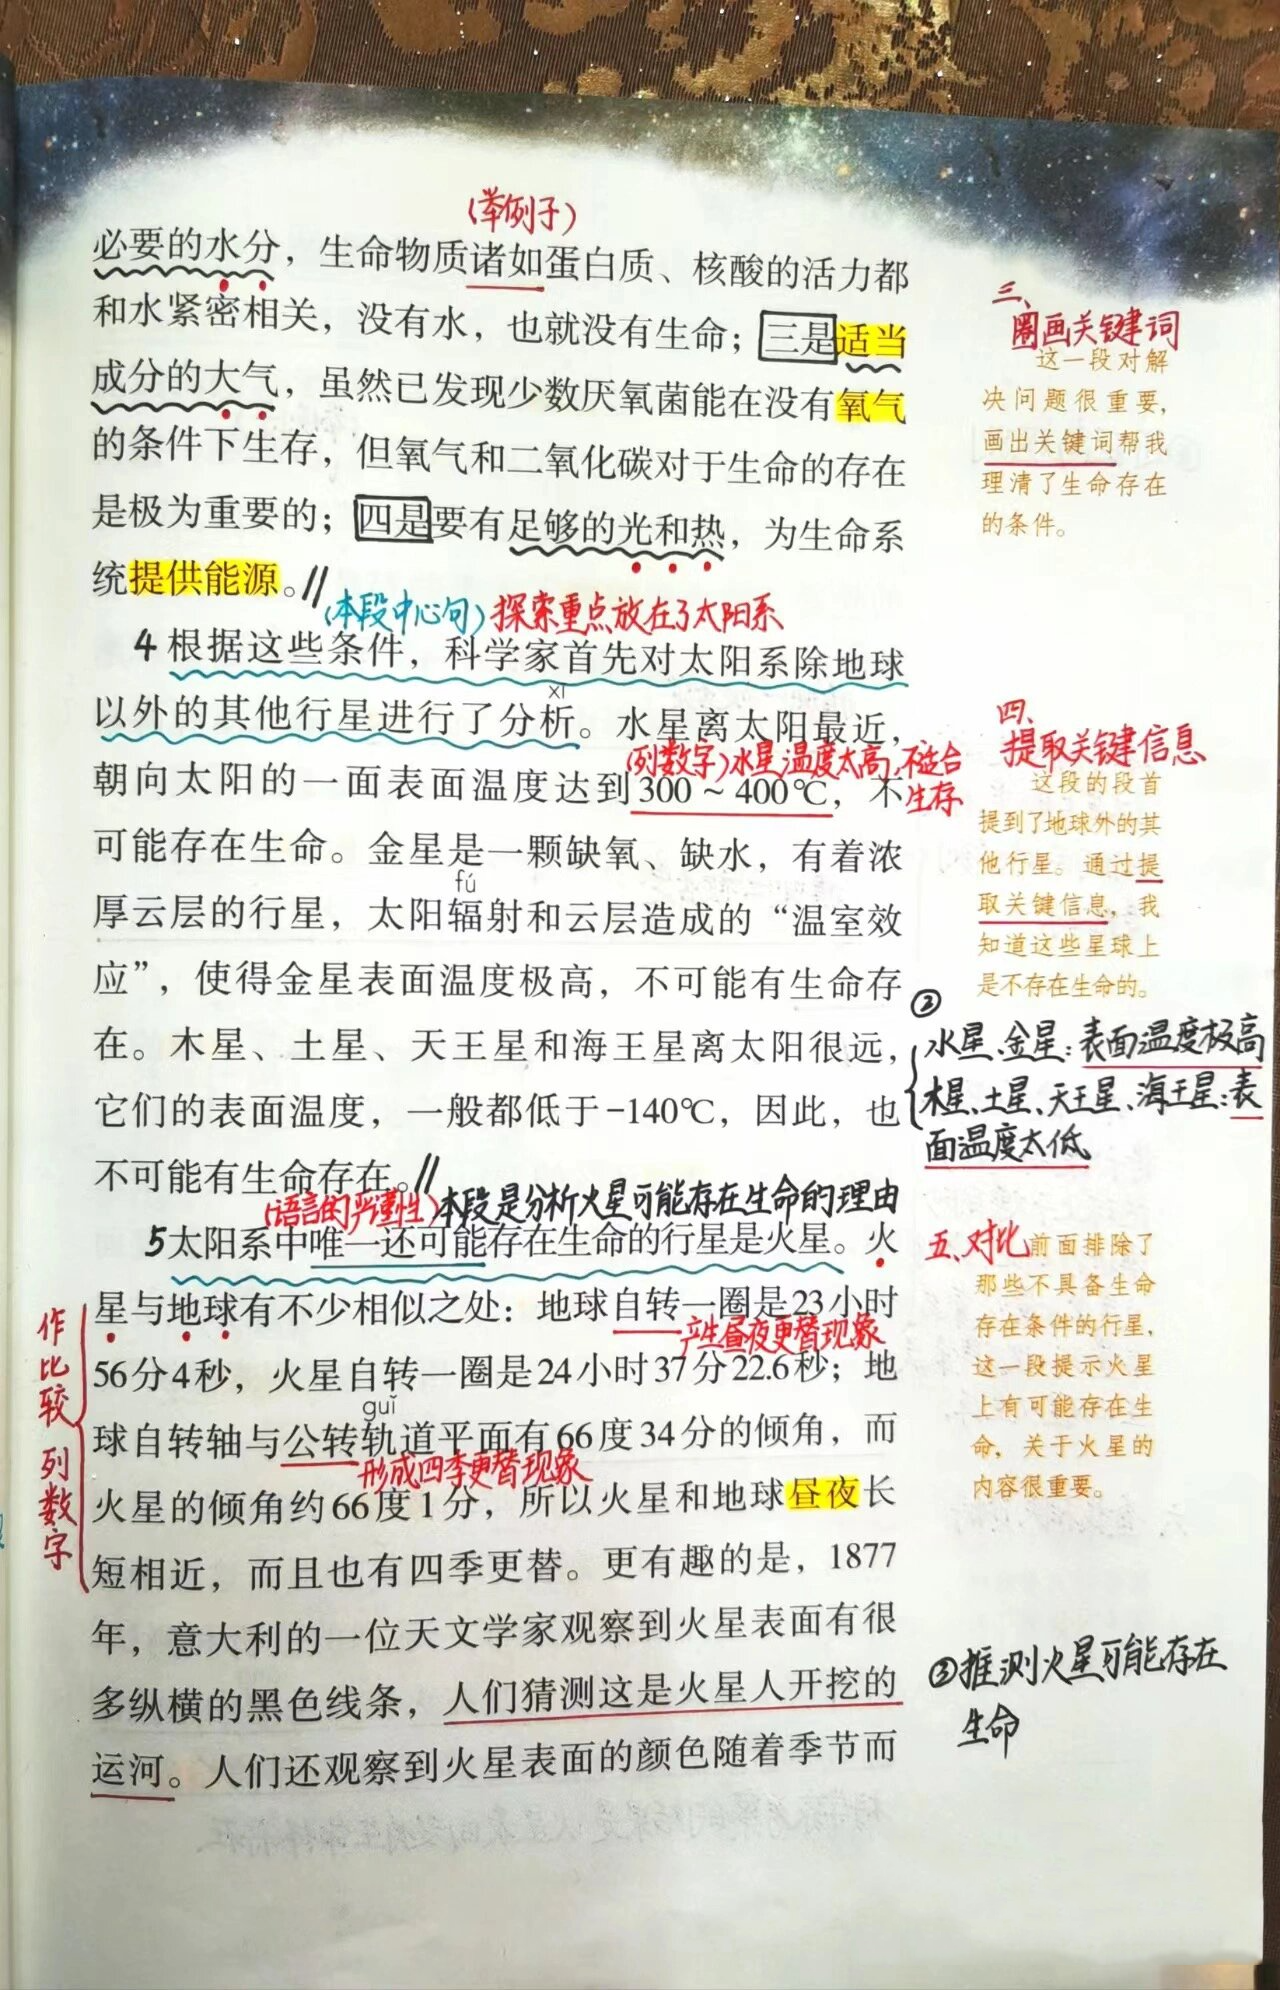 (举例子)
必要的水分，生命物质诸如蛋白质、核酸的活力都
和水紧密相关，没有水，也就没有生命；三是适当
成分的大气，虽然已发现少数厌氧菌能在没有氧气
的条件下生存，但氧气和二氧化碳对于生命的存在
是极为重要的；四是要有足够的光和热，为生命系
统提供能源。//
(本段中心句) 探索重点放在了太阳系
4 根据这些条件，科学家首先对太阳系除地球
xī
以外的其他行星进行了分析。水星离太阳最近，
(列数字) 水星温度太高，不适合
生存
朝向太阳的一面表面温度达到300～400℃，不
可能存在生命。金星是一颗缺氧、缺水，有着浓
fú
厚云层的行星，太阳辐射和云层造成的“温室效
应”，使得金星表面温度极高，不可能有生命存
在。木星、土星、天王星和海王星离太阳很远，
它们的表面温度，一般都低于-140℃，因此，也
不可能有生命存在。//
(语言的严谨性) 本段是分析火星可能存在生命的理由
5 太阳系中唯一还可能存在生命的行星是火星。火
星与地球有不少相似之处：地球自转一圈是23小时
产生昼夜更替现象
56分4秒，火星自转一圈是24小时37分22.6秒；地
guǐ
球自转轴与公转轨道平面有66度34分的倾角，而
形成四季更替现象
火星的倾角约66度1分，所以火星和地球昼夜长
短相近，而且也有四季更替。更有趣的是，1877
年，意大利的一位天文学家观察到火星表面有很
多纵横的黑色线条，人们猜测这是火星人开挖的
运河。人们还观察到火星表面的颜色随着季节而
作比较 列数字
三、
圈画关键词
这一段对解
决问题很重要，
画出关键词帮我
理清了生命存在
的条件。
四、
提取关键信息
这段的段首
提到了地球外的其
他行星。通过提
取关键信息，我
知道这些星球上
是不存在生命的。
②
水星、金星：表面温度极高
木星、土星、天王星、海王星：表
面温度太低
五、对比
前面排除了
那些不具备生命
存在条件的行星，
这一段提示火星
上有可能存在生
命，关于火星的
内容很重要。
③推测火星可能存在
生命